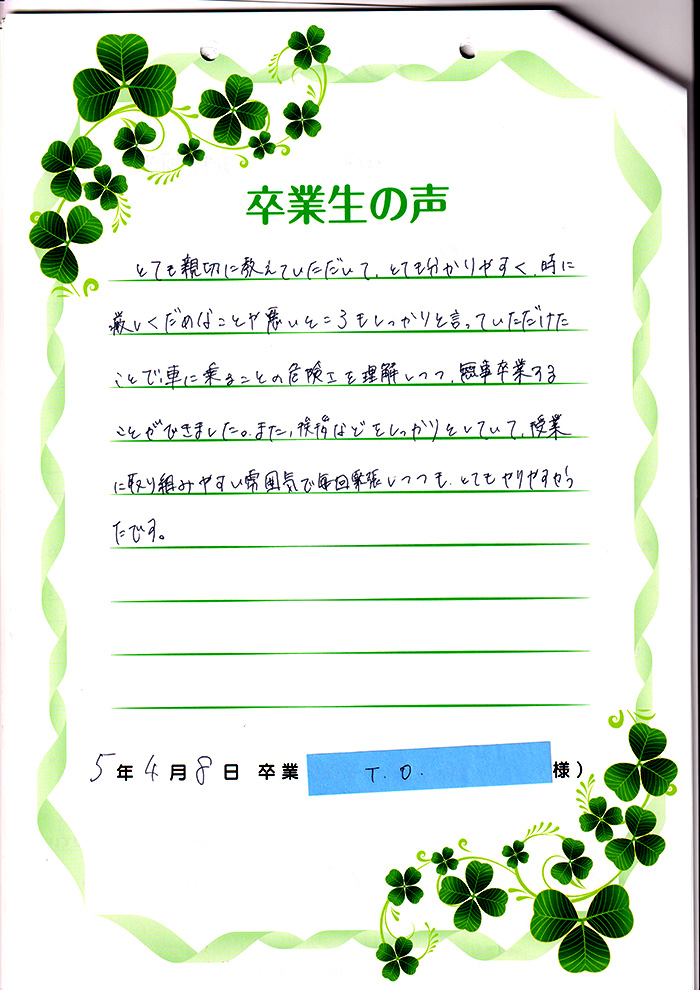 卒業生の声
とても親切に教えていただいて、とても分かりやすく、時に
厳しくだめなことや悪いところもしっかりと言っていただけた
ことで車に乗ることの危険性を理解しつつ、無事卒業する
ことができました。また、挨拶などをしっかりとしていて、授業
に取り組みやすい雰囲気で毎回緊張しつつも、とてもやりやすかっ
たです。
5年4月8日 卒業 T.O. 様)